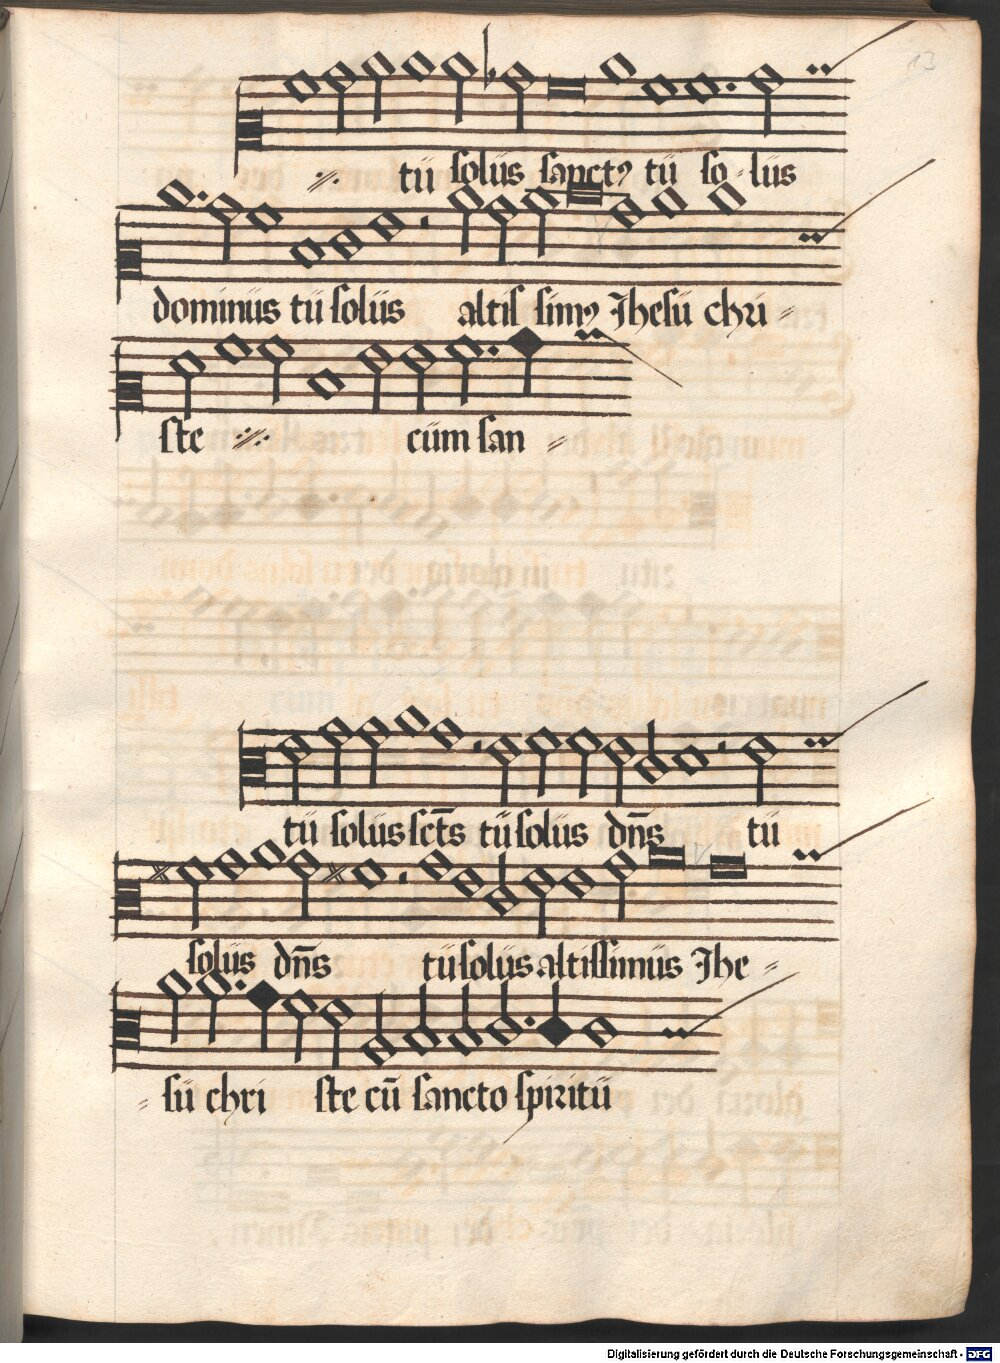 13
tü solüs sanctꝰ tü so-lüs
dominüs tü solüs altis simꝰ Jhesü chri=
ste cüm san=
tü solüs sct̄s tü solüs dn̄s tü
solüs dn̄s tü solüs altissimüs Jhe=
=sü chri ste cū sancto spiritü
Digitalisierung gefördert durch die Deutsche Forschungsgemeinschaft - DFG